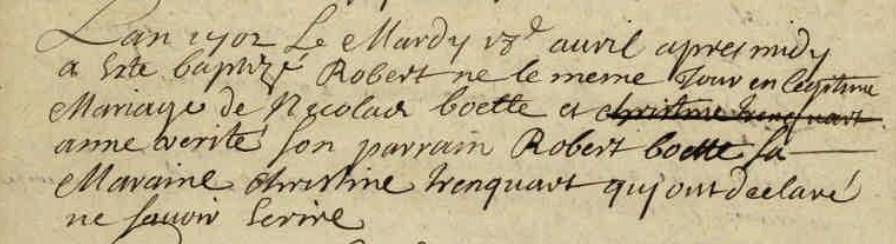 Lan 1702 Le Mardy 18e auril apres midy
a Este baptizé Robert ne le meme Jour en legitime
Mariage de Nicolas boette et christine trenquart
anne verité son parrain Robert boette sa
Maraine christine trenquart qui ont declaré
ne sauoir Escrire